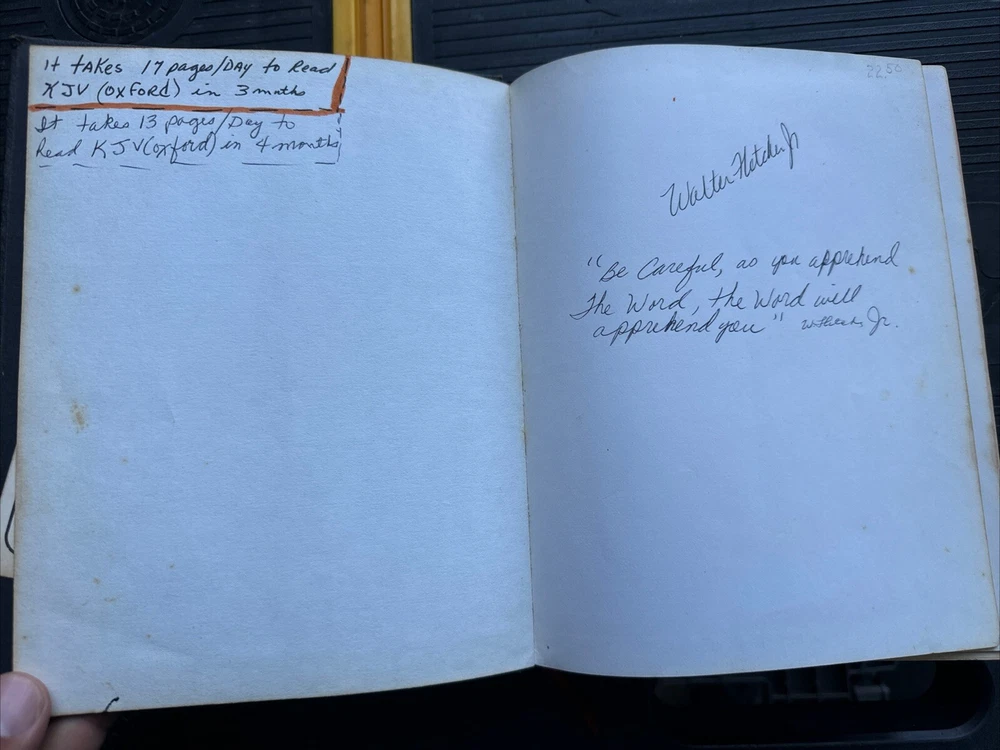 It takes 17 pages/DAY to Read
KJV (OXFORD) in 3 mnths
It takes 13 pages/Day to
Read KJV (oxford) in 4 months
22.50
Walter Fletcher Jr
"Be Careful, as you apprehend
The Word, the Word will
apprehend you" W. Fletcher Jr.